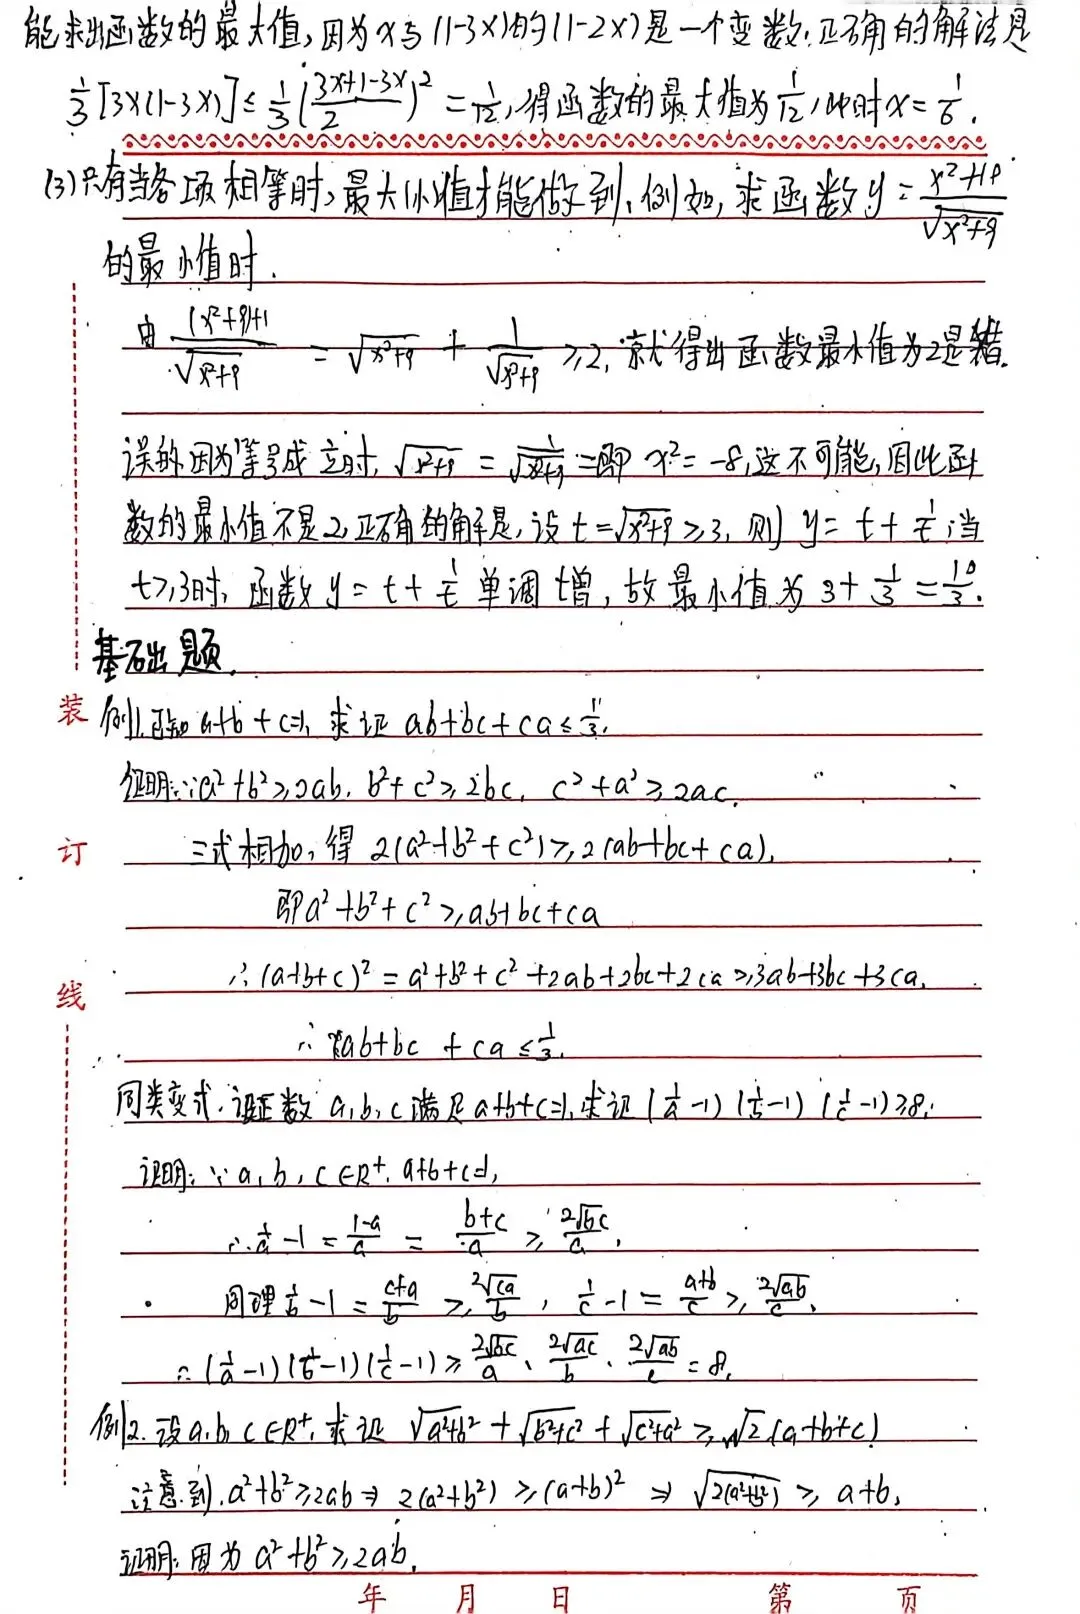 能求出函数的最大值,因为x与(1-3x)的(1-2x)是一个变数.正确的解法是
1/3[3x(1-3x)]≤1/3((3x+1-3x)/2)²=1/12,得函数的最大值为1/12,此时x=1/6.
(3)只有当各项相等时,最大(小)值才能做到,例如,求函数y=(x²+10)/√(x²+9)
的最小值时.
由((x²+9)+1)/√(x²+9)=√(x²+9)+1/√(x²+9)≥2,就得出函数最小值为2是错
误的.因为等号成立时,√(x²+9)=1/√(x²+9)即x²=-8,这不可能,因此函
数的最小值不是2,正确的解是,设t=√(x²+9)≥3,则y=t+1/t;当
t≥3时,函数y=t+1/t单调增,故最小值为3+1/3=10/3.
基础题.
例1.已知a+b+c=1,求证ab+bc+ca≤1/3.
证明:∵a²+b²≥2ab,b²+c²≥2bc,c²+a²≥2ac.
三式相加,得2(a²+b²+c²)≥2(ab+bc+ca).
即a²+b²+c²≥ab+bc+ca
∴(a+b+c)²=a²+b²+c²+2ab+2bc+2ca≥3ab+3bc+3ca.
∴ab+bc+ca≤1/3.
同类变式.设正数a,b,c满足a+b+c=1,求证(1/a-1)(1/b-1)(1/c-1)≥8.
证明:∵a,b,c∈R⁺,a+b+c=1,
∴1/a-1=(1-a)/a=(b+c)/a≥2√bc/a,
同理1/b-1=(c+a)/b≥2√ca/b,1/c-1=(a+b)/c≥2√ab/c.
∴(1/a-1)(1/b-1)(1/c-1)≥2√bc/a·2√ac/b·2√ab/c=8.
例2.设a,b,c∈R⁺,求证√(a²+b²)+√(b²+c²)+√(c²+a²)≥√2(a+b+c)
注意到.a²+b²≥2ab⇒2(a²+b²)≥(a+b)²⇒√(2(a²+b²))≥a+b,
证明:因为a²+b²≥2ab.
装
订
线
年 月 日 第 页